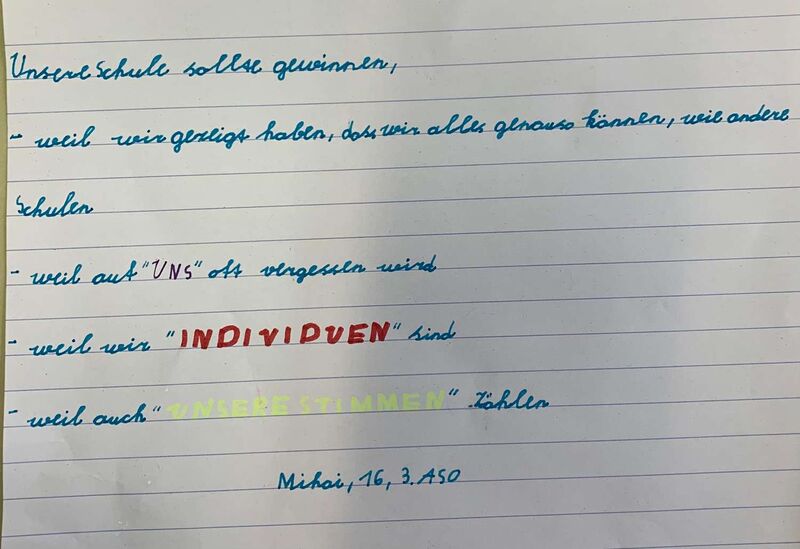 Unsere Schule sollte gewinnen,
- weil wir gezeigt haben, dass wir alles genauso können, wie andere
Schulen
- weil auf "UNS" oft vergessen wird
- weil wir "INDIVIDUEN" sind
- weil auch "UNSERE STIMMEN" zählen
Mihai, 16, 3. ASO